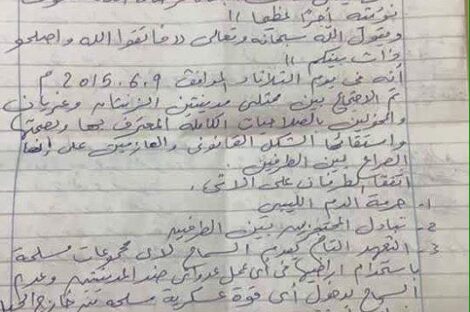 نؤتيه أجرا عظيما))
ويقول الله سبحانه وتعالى ((فاتقوا الله واصلحو
ذات بينكم))
أنه في يوم الثلاثاء الموافق 2015.6.9 م
تم الاجتماع بين ممثلي مدينتين الزنتان وغريان
والمخولين بالصلاحيات الكاملة المعترف بها وبصحتها
واستيفائها الشكل القانوني والعازمين على إنهاء
الصراع بين الطرفين.
اتفقا الطرفان على الاتي:
1- حرمة الدم الليبي
2- تبادل المحتجزين بين الطرفين
3- التعهد التام بعدم السماح لاي مجموعات مسلحة
باستخدام اراضيها في أي عمل عدواني ضد المدينتين وعدم
السماح بدخول أي قوة عسكرية مسلحة من خارج